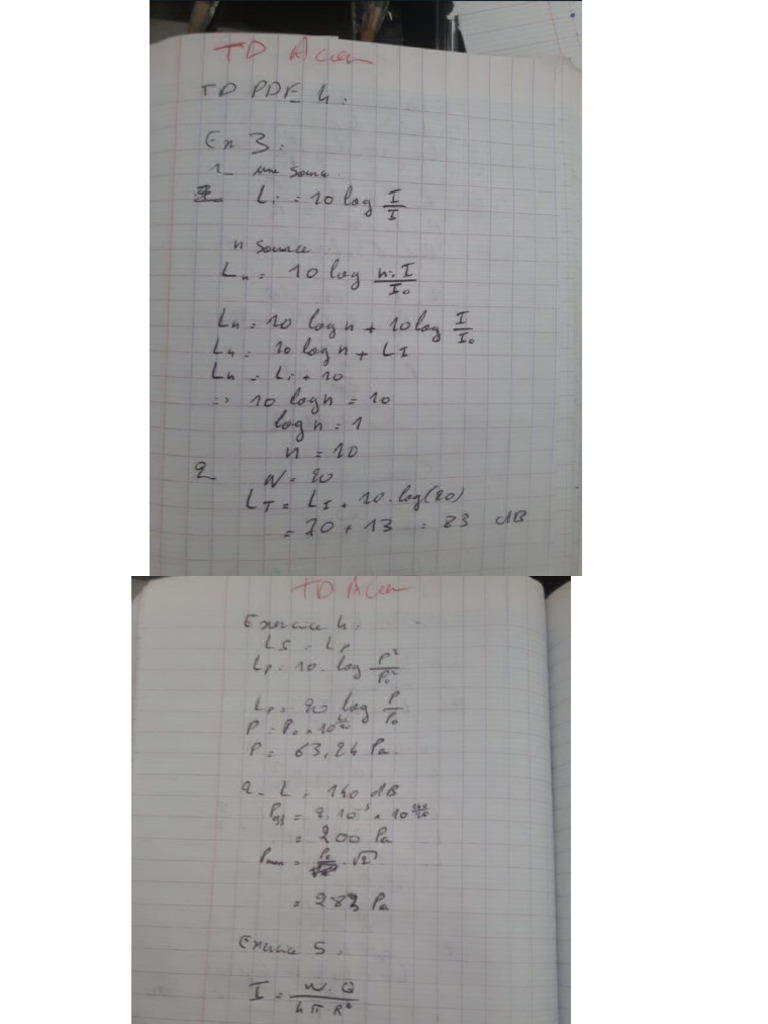 TD Acou
TD PDF 4 :
Ex 3 :
1_ une source
Li = 10 log I/I
n source
Ln = 10 log n.I/I₀
Ln = 10 log n + 10 log I/I₀
Ln = 10 log n + LI
Ln = Li + 10
=> 10 log n = 10
log n = 1
n = 10
2 N = 20
LT = LI + 10.log(20)
= 70 + 13 = 83 dB
TD Acou
Exercice 4 :
LI = Lp
Lp = 10. log P²/P₀²
Lp = 20 log P/P₀
P = P₀ × 10
P = 63,24 Pa
2- L = 140 dB
Peff = 2.10⁻⁵ × 10^140/20
= 200 Pa
Pmax = .√2
= 283 Pa
Exercice 5 :
I = W.Q/4π.R²